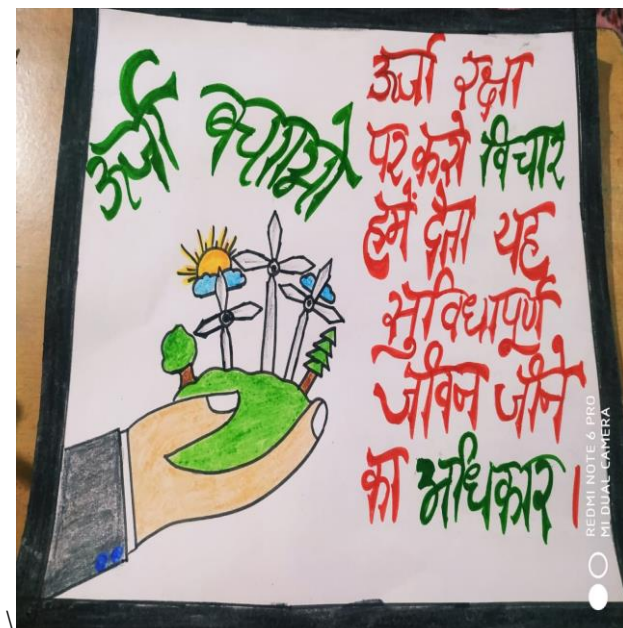 ऊर्जा बचाओ
ऊर्जा रक्षा
पर करो विचार
हमें देता यह
सुविधापूर्ण
जीवन जीने
का अधिकार।
REDMI NOTE 6 PRO
MI DUAL CAMERA